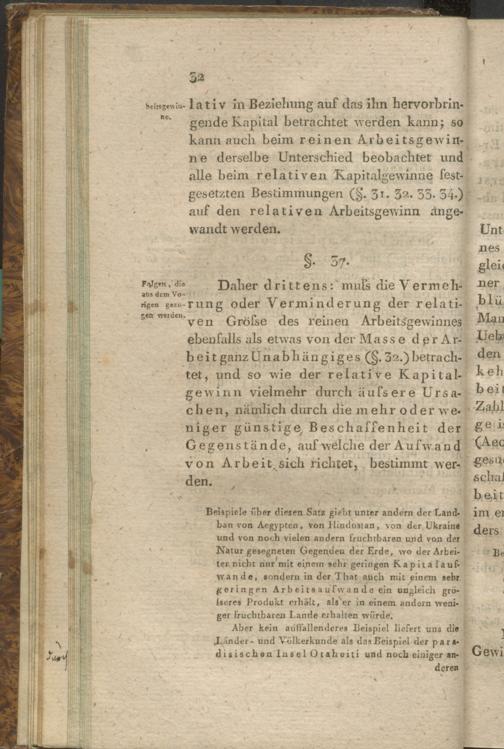 32
beitsgewin-
ne.
lativ in Beziehung auf das ihn hervorbrin-
gende Kapital betrachtet werden kann; so
kann auch beim reinen Arbeitsgewin-
ne derselbe Unterschied beobachtet und
alle beim relativen Kapitalgewinne fest-
gesetzten Bestimmungen (§. 31. 32. 33. 34.)
auf den relativen Arbeitsgewinn ange-
wandt werden.
§. 37.
Folgen, die
aus dem Vo-
rigen gezo-
gen werden.
Daher drittens: muſs die Vermeh-
rung oder Verminderung der relati-
ven Gröſse des reinen Arbeitsgewinnes
ebenfalls als etwas von der Masse der Ar-
beit ganz Unabhängiges (§. 32.) betrach-
tet, und so wie der relative Kapital-
gewinn vielmehr durch äuſsere Ursa-
chen, nämlich durch die mehr oder we-
niger günstige Beschaffenheit der
Gegenstände, auf welche der Aufwand
von Arbeit sich richtet, bestimmt wer-
den.
Beispiele über diesen Satz giebt unter andern der Land-
bau von Aegypten, von Hindostan, von der Ukraine
und von noch vielen andern fruchtbaren und von der
Natur gesegneten Gegenden der Erde, wo der Arbei-
ter nicht nur mit einem sehr geringen Kapitalauf-
wande, sondern in der That auch mit einem sehr
geringen Arbeitsaufwande ein ungleich grö-
ſseres Produkt erhält, als er in einem andern weni-
ger fruchtbaren Lande erhalten würde.
Aber kein auffallenderes Beispiel liefert uns die
Länder- und Völkerkunde als das Beispiel der para-
disischen Insel Otaheiti und noch einiger an-
deren
Unt
nes
glei
ner
blü
Man
Uebe
den
keh
beit
Zahl
ge i
(Aec
gesu
schaf
beit
im er
ders
Be
Gewi